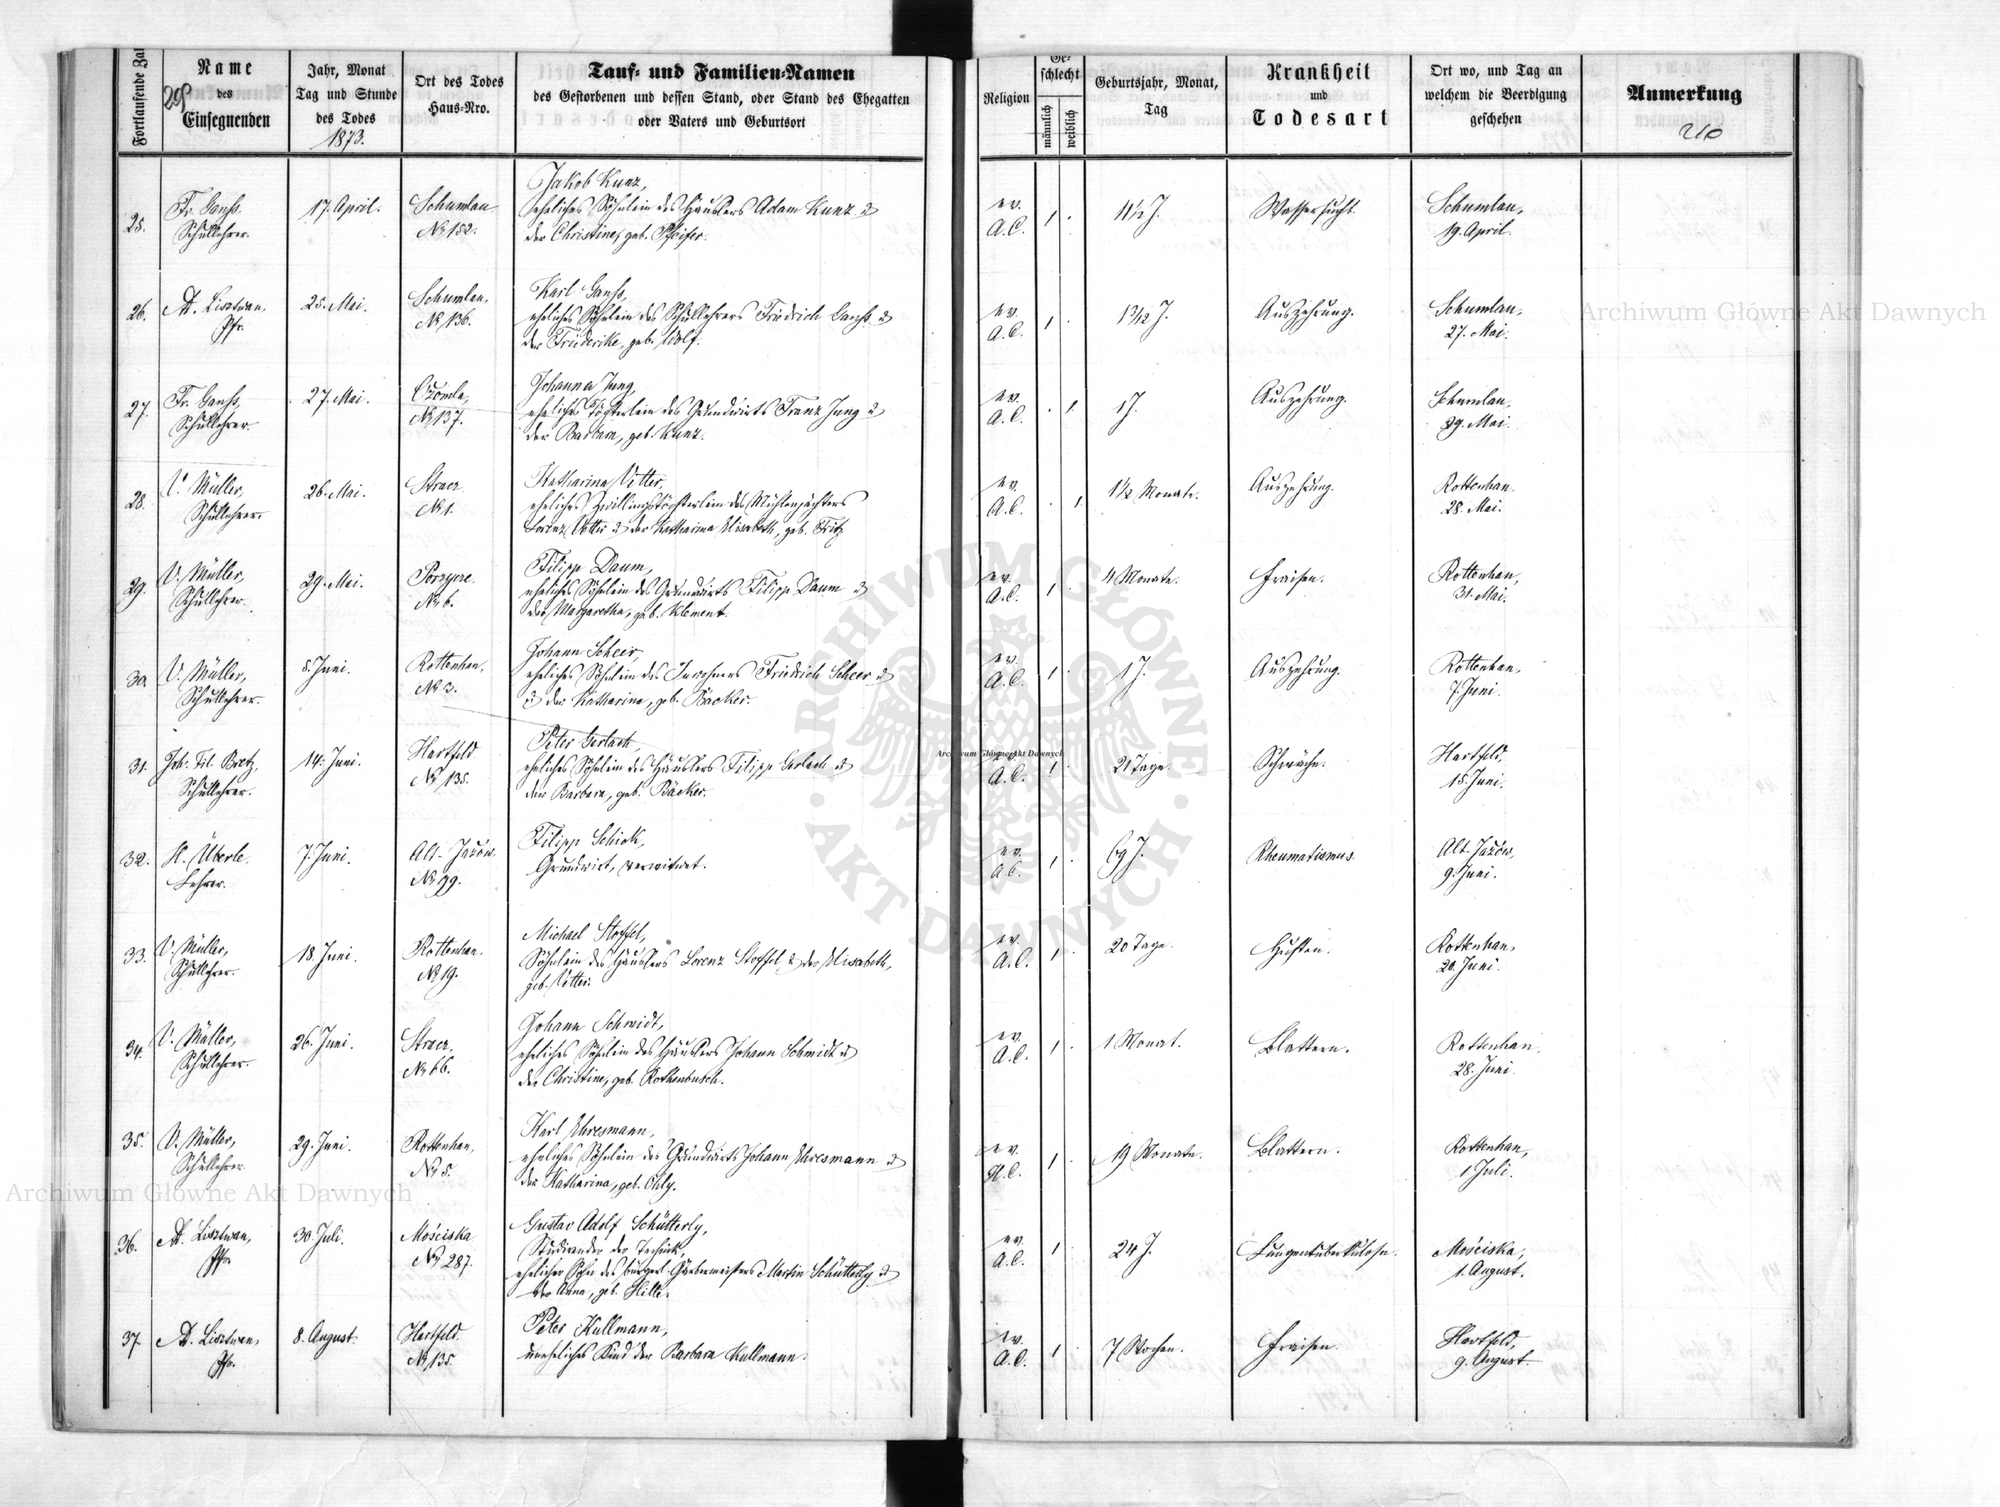 Fortlaufende Zal
Name
des
Einsegnenden
Jahr, Monat
Tag und Stunde
des Todes
1873.
Ort des Todes
Haus-Nro.
Tauf- und Familien-Namen
des Gestorbenen und dessen Stand, oder Stand des Ehegatten
oder Vaters und Geburtsort
Religion
Ge-
schlecht
männlich
weiblich
Geburtsjahr, Monat,
Tag
Krankheit
und
Todesart
Ort wo, und Tag an
welchem die Beerdigung
geschehen
Anmerkung
210
25.
Fr. Ganß.
Schullehrer.
17. April.
Schumlau
No 152.
Jakob Kunz,
eheliches Söhnlein des Häuslers Adam Kunz &
der Christine, geb. Pfeifer.
ev.
A.C.
1
11½ J.
Wassersucht.
Schumlau,
19. April.
26.
A. Lisztwan,
Pfr.
25. Mai.
Schumlau,
No 136.
Karl Ganß,
eheliches Söhnlein des Schullehrers Friedrich Ganß &
der Friederike, geb. Wolf.
ev.
A.C.
1
1 3/12 J.
Auszehrung.
Schumlau,
27. Mai.
27.
Fr. Ganß,
Schullehrer.
27. Mai.
Czómla,
No 137.
Johanna Jung
eheliches Töchterlein des Grundwirts Franz Jung &
der Barbara, geb. Kunz.
ev.
A.C.
1
1 J.
Auszehrung.
Schumlau,
29. Mai.
28.
V. Müller,
Schullehrer.
26. Mai.
No 1.
Katharina Vetter,
eheliches Zwillingstöchterlein des Mühlenpächters
Lorenz Vetter & der Katharina Elisabeth, geb. Fritz
ev.
A.C.
1
1½ Monate.
Auszehrung.
Rottenhan.
28. Mai.
29.
V. Müller,
Schullehrer.
29. Mai.
No 6.
Filipp Daum,
eheliches Söhnlein des Grundwirts Filipp Daum &
der Margaretha, geb. Klement.
ev.
A.C.
1
4 Monate.
Fraisen.
Rottenhan,
31. Mai.
30
V. Müller,
Schullehrer.
5. Juni.
Rottenhan.
No 3.
Johann Scheer,
eheliches Söhnlein des Inwohners Friedrich Scheer &
& der Katharina, geb. Bäcker.
ev.
A.C.
1
1 J.
Auszehrung.
Rottenhan,
7. Juni.
31.
Joh. Fil. Bretz,
Schullehrer.
14. Juni.
Hartfeld
No 135.
Peter Gerlach,
eheliches Söhnlein des Häuslers Filipp Gerlach &
der Barbara, geb. Bäcker.
A.C.
1
21 Tage.
Schwäche.
Hartfeld,
15. Juni.
32.
H. Überle,
Lehrer.
7. Juni.
Alt-Jażów
No 99.
Filipp Schick,
Grundwirt, verwitwet.
ev.
A.C.
1
69 J.
Rheumatismus.
Alt-Jażów,
9. Juni.
33.
V. Müller,
Schullehrer.
18. Juni.
Rottenhan.
No 19.
Michael Stoffel,
Söhnlein des Häuslers Lorenz Stoffel & der Elisabeth,
geb. Vetter.
ev.
A.C.
1
20 Tage.
Husten.
Rottenhan,
20. Juni.
34.
V. Müller,
Schullehrer.
26. Juni.
No 66.
Johann Schmidt,
eheliches Söhnlein des Häuslers Johann Schmidt &
der Christine, geb. Rothenbusch.
ev.
A.C.
1
1 Monat.
Blattern.
Rottenhan
28. Juni.
35.
V. Müller,
Schullehrer
29. Juni.
Rottenhan,
No 5.
Karl Ehresmann,
eheliches Söhnlein des Grundwirts Johann Ehresmann &
der Katharina, geb. Ohly.
ev.
A.C.
1
19 Monate.
Blattern.
Rottenhan,
1. Juli.
36.
A. Lisztwan,
Pfr.
30. Juli.
Mościska
No 287.
Gustav Adolf Schütterly,
Studirender der Technik,
ehelicher Sohn des bürgerl. Gärbermeisters Martin Schütterly &
der Anna, geb. Hille.
ev.
A.C.
1
24 J.
Lungentuberkulose.
Mościska,
1. August.
37.
A. Lisztwan,
Pfr.
8. August.
Hartfeld.
No 135.
Peter Kullmann,
uneheliches Kind der Barbara Kullmann.
ev.
A.C.
1
7 Wochen.
Fraisen.
Hartfeld,
9. August.
Archiwum Główne Akt Dawnych
Archiwum Główne Akt Dawnych
Archiwum Główne Akt Dawnych
ARCHIWUM GŁÓWNE · AKT DAWNYCH ·